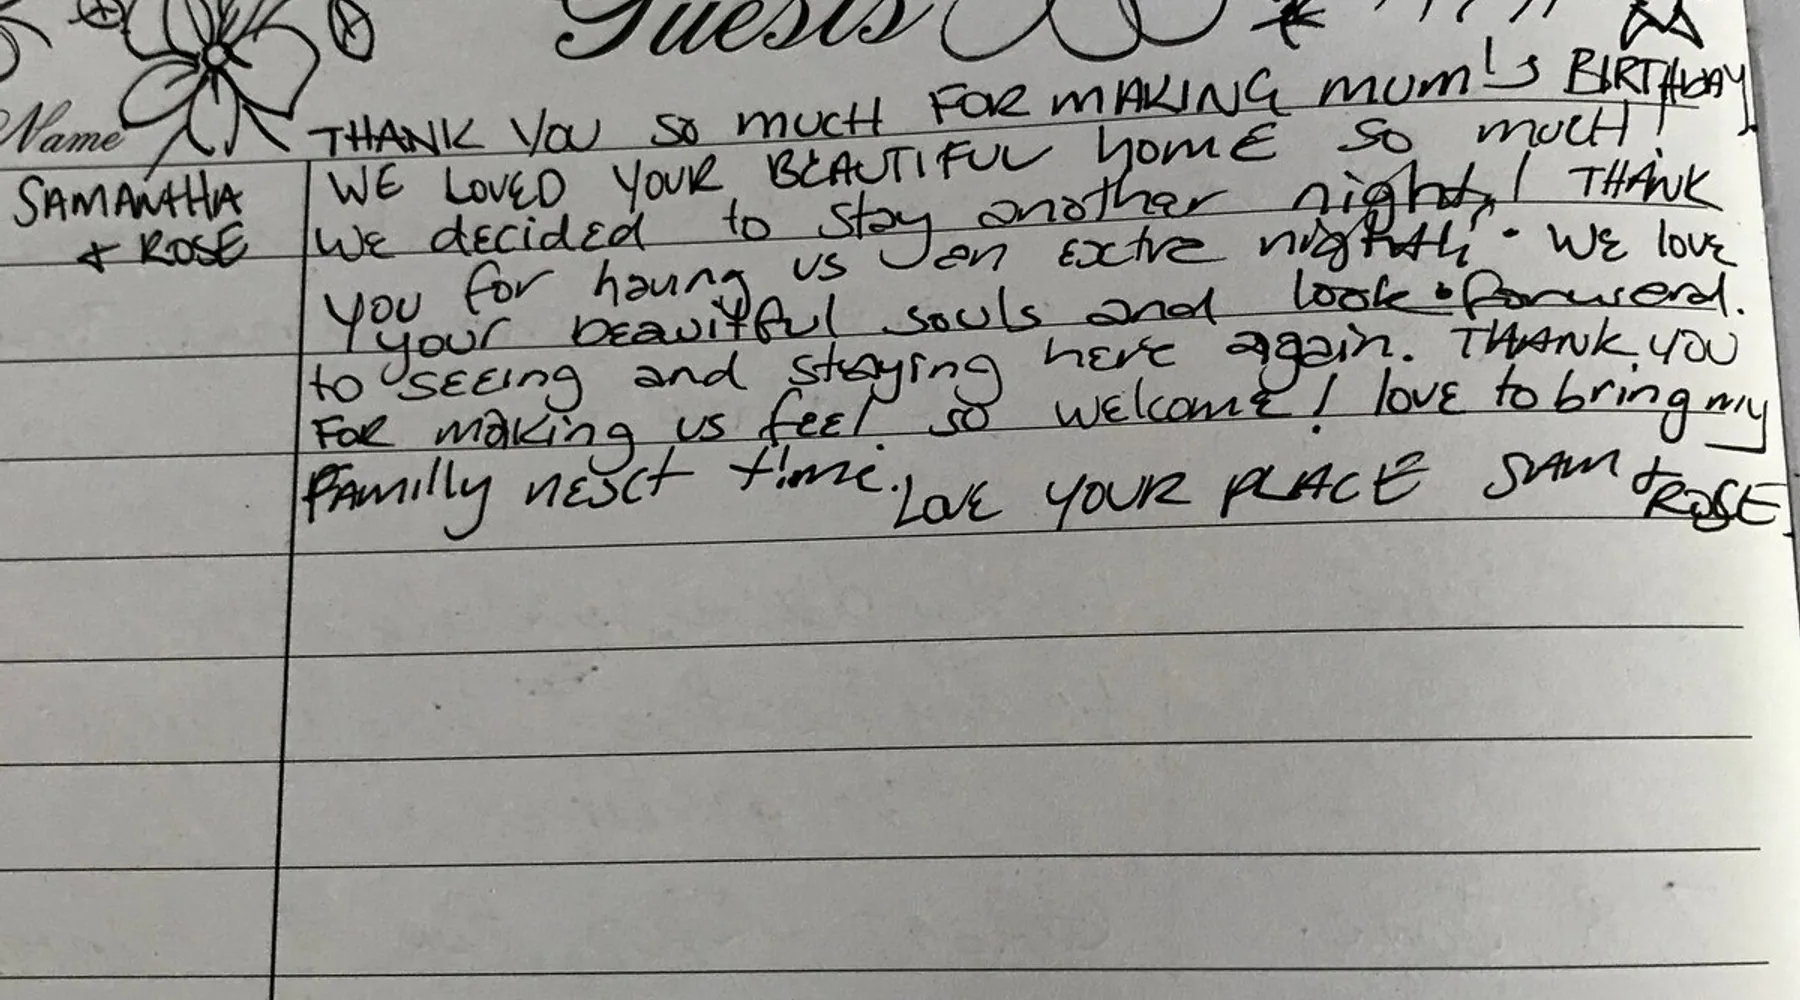 Guests
Name
SAMANTHA
+ ROSE
THANK YOU SO MUCH FOR MAKING MUM'S BIRTHDAY.
WE LOVED YOUR BEAUTIFUL home SO MUCH!
WE decided to stay another night! THANK
YOU for having us an extra night. WE love
your beautiful souls and look forward.
to seeing and staying here again. THANK YOU
FOR making us feel so welcome! love to bring my
FAMILLY next time. LOVE YOUR PLACE SAM + ROSE.